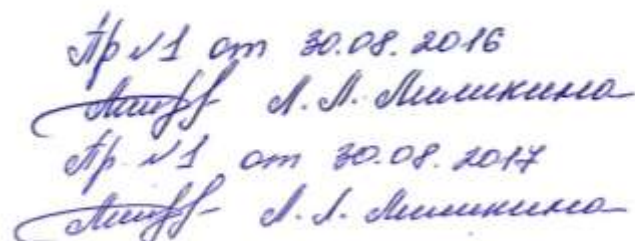 Пр №1 от 30.08.2016
Л.Л. Миликина
Пр. №1 от 30.08.2017
Л.Л. Миликина